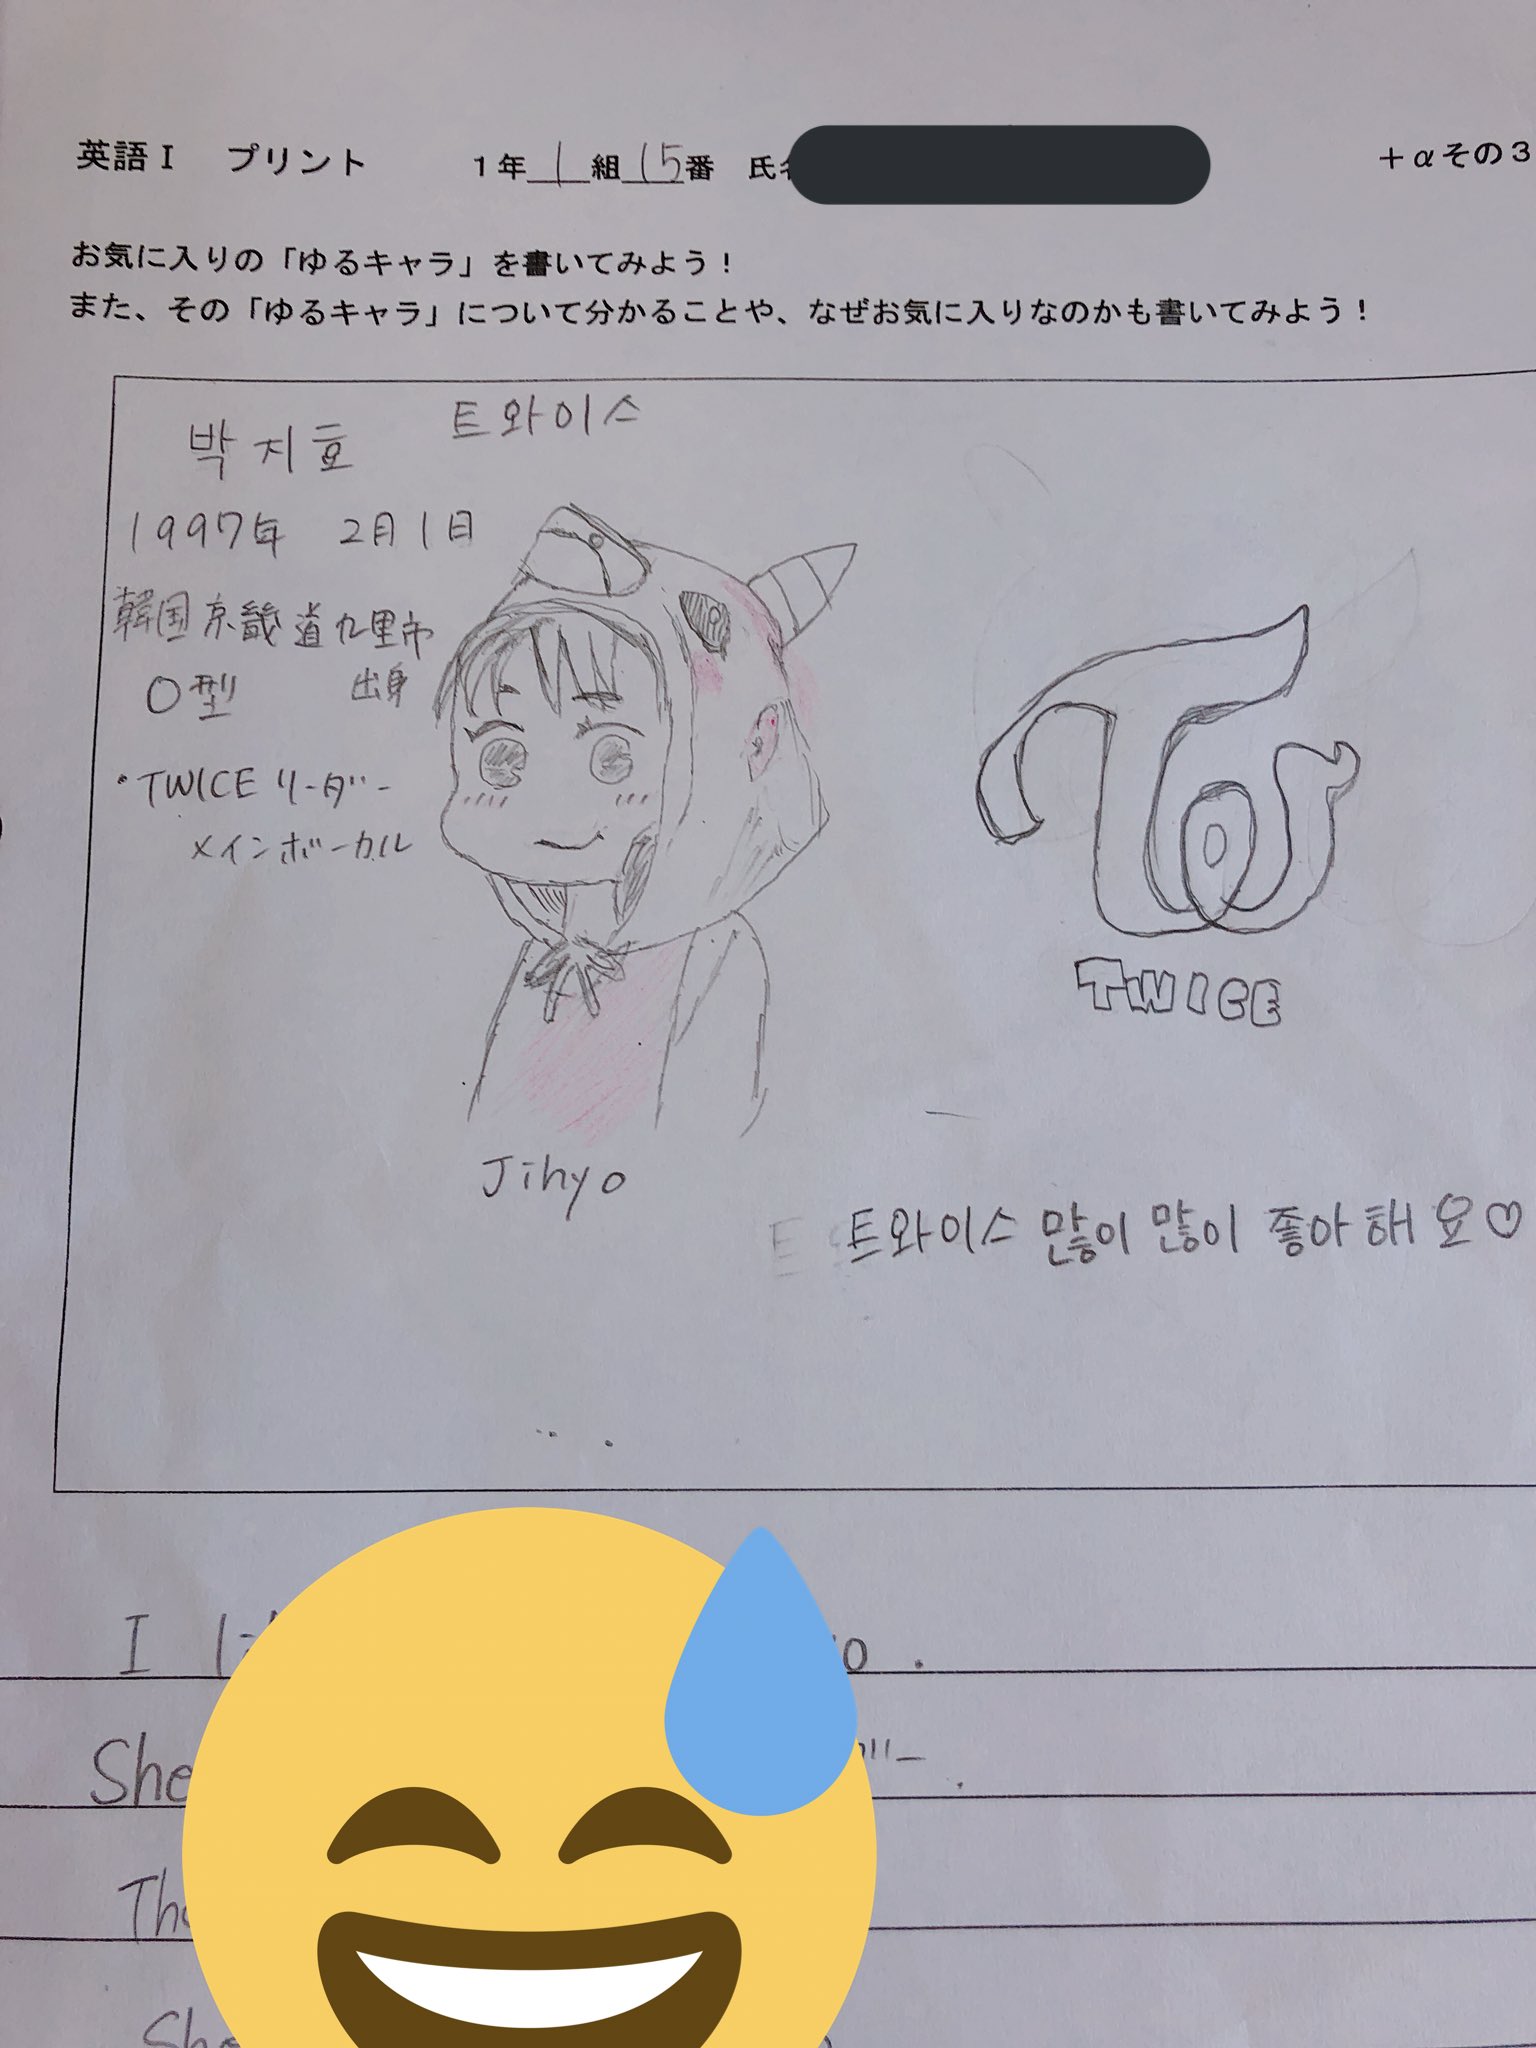 英語Ⅰ プリント 1年 1 組 15 番 氏名 +αその3
お気に入りの「ゆるキャラ」を書いてみよう!
また、その「ゆるキャラ」について分かることや、なぜお気に入りなのかも書いてみよう!
박지효 트와이스
1997年 2月1日
韓国京畿道九里市
O型 出身
・TWICEリーダー
メインボーカル
TWICE
Jihyo
트와이스 많이 많이 좋아해요♡
I
She